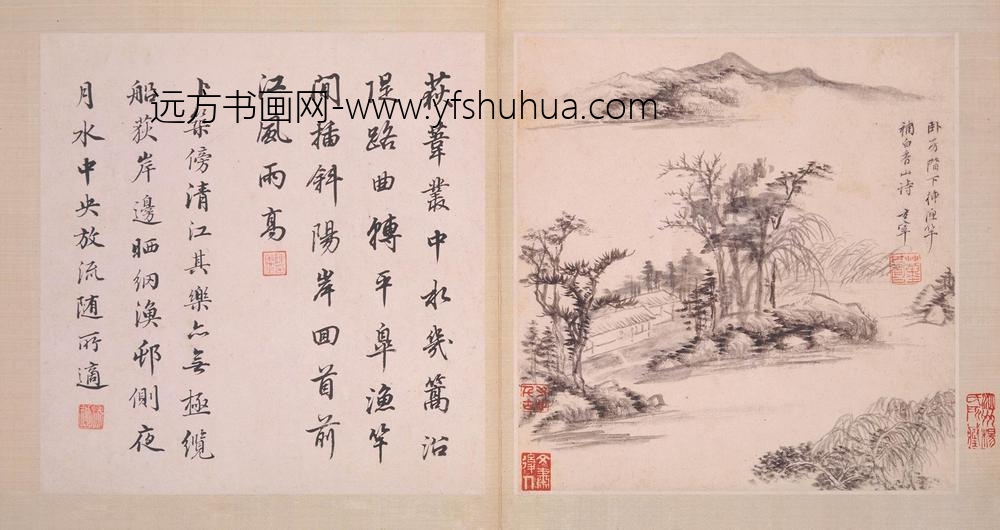 萩葦叢中水幾篙沿
堤路曲轉平皐漁竿
閒插斜陽岸回首前
江風雨高
卜築傍清江其樂亦無極纜
船荻岸邊晒網漁邨側夜
月水中央放流随所適
卧看階下伸漁竿
補白香山诗
远方书画网-www.yfshuhua.com